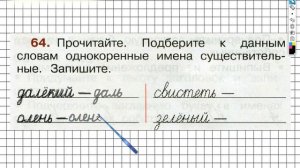 64. Прочитайте. Подберите к данным
словам однокоренные имена существитель-
ные. Запишите.
далёкий — даль свистеть —
олень — олене зелёный —